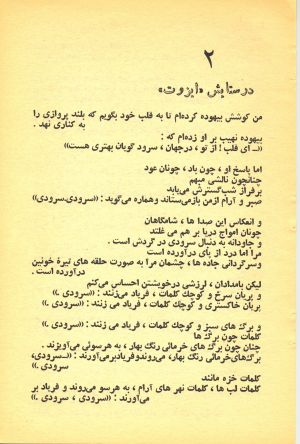 ۲
در ستایش «ایزوت»
من کوشش بیهوده کرده‌ام تا به قلب خود بگویم که بلند پروازی را
به کناری نهد .
بیهوده نهیب بر او زده‌ام که :
((ــ ای قلب ! از تو ، درجهان ، سرود گویان بهتری هست))
اما پاسخ او ، چون باد ، چونان عود
چنانچون نالشی مبهم
برفراز شب‌گسترش می‌یابد
صبر و آرام ازمن بازمی‌ستاند وهماره می‌گوید : ((سرودی.سرودی))
و انعکاس این صدا ها ، شامگاهان
چونان امواج دریا بر هم می غلتد
و جاودانه به دنبال سرودی در گردش است .
مرا اما درد از پای درآورده است
وسرگردانی جاده ها ، چشمان مرا به صورت حلقه های تیرهٔ خونین
درآورده است .
لیکن بامدادان ، لرزشی درخویشتن احساس می‌کنم
و پریان سرخ و کوچك کلمات ، فریاد می‌زنند : ((سرودی .))
پریان خاکستری و کوچك کلمات ، فریاد می زنند : ((سرودی .))
و برگ های سبز و کوچك کلمات ، فریاد می زنند : ((سرودی .))
کلمات چون برگ ها
چنان چون برگ های خرمائی رنگ بهار ، به هرسوئی می‌آویزند .
برگ‌های‌خرمائی رنگ بهار، می‌روندوفریادبرمی‌آورند : ((ــسرودی،
سرودی .))
کلمات خزه مانند
کلمات لب ها ، کلمات نهر های آرام ، به هرسو می‌روند و فریاد بر
می‌آورند : ((سرودی ، سرودی .))